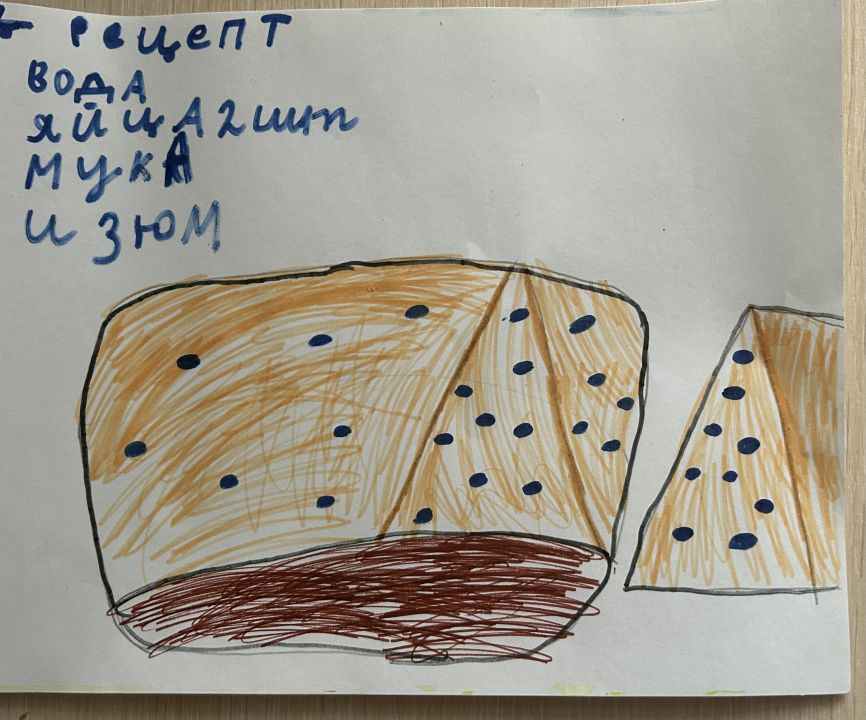 РецепТ
ВОДА
яйцА 2 шт
МукА
изюм